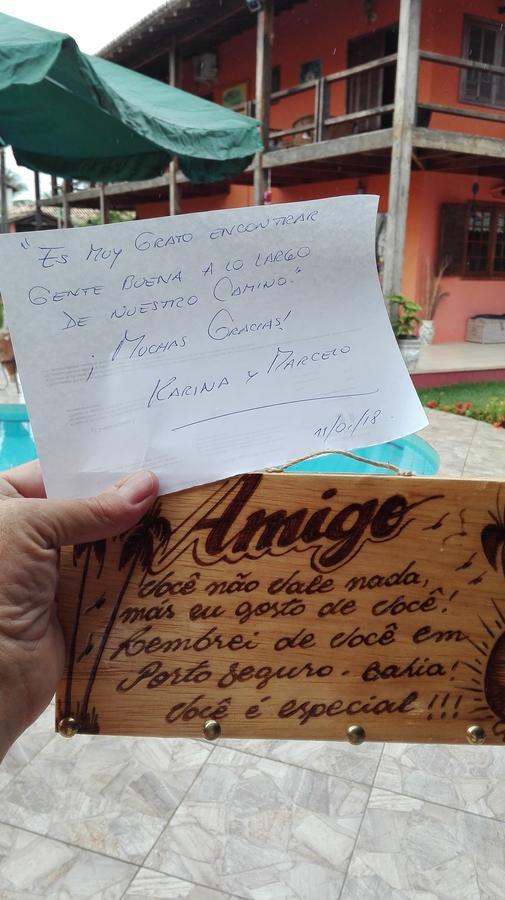 "Es muy grato encontrar
gente buena a lo largo
de nuestro camino."
¡Muchas Gracias!
Karina y Marcelo
11/01/18.
Amigo
Você não vale nada,
mas eu gosto de você!
Lembrei de você em
Porto Seguro - Bahia!
Você é especial!!!